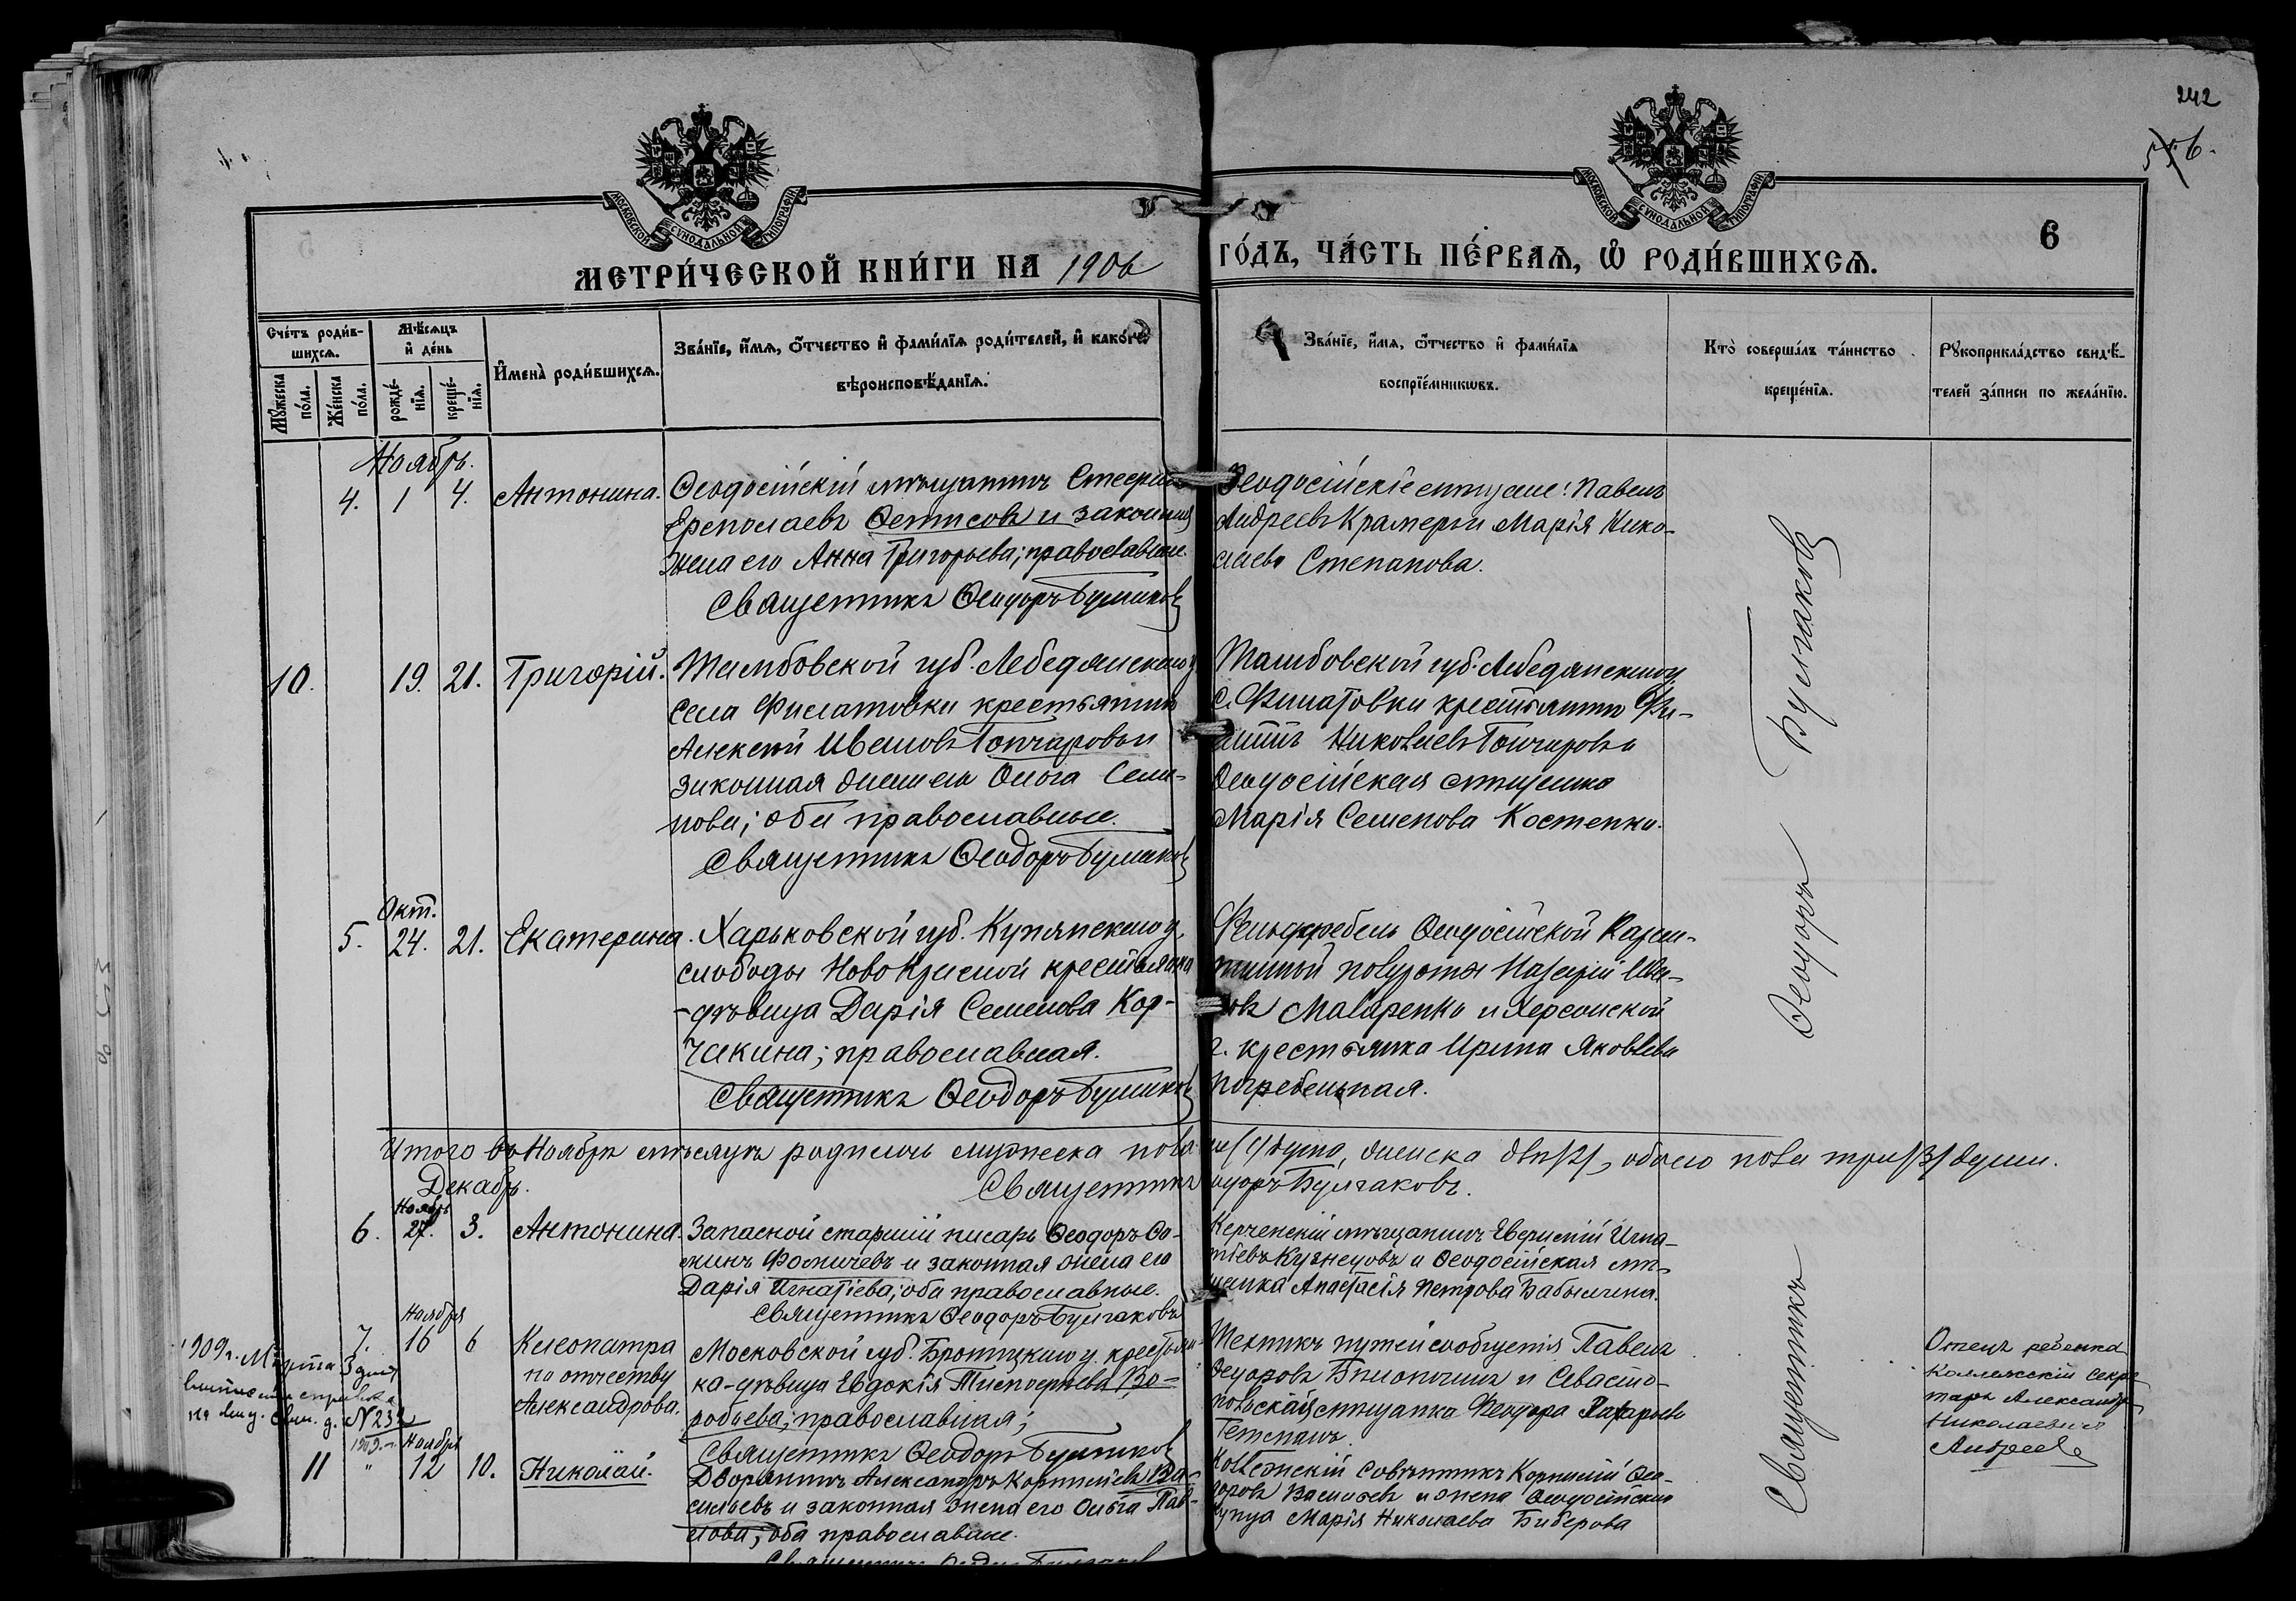 242
556.
6
МОСКОВСКОЙ СѴНОДАЛЬНОЙ ТИПОГРАФІИ
МОСКОВСКОЙ СѴНОДАЛЬНОЙ ТИПОГРАФІИ
МЕТРИ́ЧЕСКОЙ КНИ́ГИ НА 1906 ГО́ДЪ, ЧА́СТЬ ПЕ́РВАѦ, Ѡ҆ РОДИ́ВШИХСѦ.
Сче́тъ роди́в-
шихсѧ.
Мꙋ́жеска по́ла.
Же́нска по́ла.
Мѣ́сѧцъ и҆ де́нь
рожде́-нїѧ.
креще́-нїѧ.
И҆мена̀ роди́вшихсѧ.
Зва́нїе, и҆́мѧ, ѻ҆́тчество и҆ фами́лїѧ роди́телей, и҆ како́гѡ
вѣроисповѣ́данїѧ.
Зва́нїе, и҆́мѧ, ѻ҆́тчество и҆ фами́лїѧ
воспрїе́мникѡвъ.
Кто̀ соверша́лъ та́инство
креще́нїѧ.
Рꙋкоприкла́дство свидѣ́-
телей за́писи по жела́нїю.
Ноябрь.
4. 1 4. Антонина.
Ѳеодосійскій мѣщанинъ
Ермолаевъ Ѳетисовъ и законная
жена его Анна Григорьева; православные.
Священникъ Ѳеодоръ Булгаковъ
Ѳеодосійскіе мѣщане: Павелъ
Андреевъ Крамеръ и Марія Нико-
лаева Степанова.
10. 19. 21. Григорій.
Тамбовской губ. Лебедянскаго у.
села Филатовки крестьянинъ
Алексѣй Ивановъ Гончаровъ и
законная жена его Ольга Семе-
нова; оба православные.
Священникъ Ѳеодоръ Булгаковъ
Тамбовской губ. Лебедянскаго у.
с. Филатовки крестьянинъ Фи-
липпъ Николаевъ Гончаровъ и
Ѳеодосійская мѣщанка
Марія Семенова Костенко.
Окт.
5. 24. 21. Екатерина.
Харьковской губ. Купянскаго у.
слободы Ново Красной крестьянка
-дѣвица Дарія Семенова Кор-
чакина; православная.
Священникъ Ѳеодоръ Булгаковъ
Фельдфебель Ѳеодосійской Каран-
тинной полуроты Назарій Ива-
новъ Макаренко и Херсонской
г. крестьянка Ирина Яковлева
Погребецькая.
Итого въ Ноябрѣ мѣсяцѣ родилось мужеска пола одна /1/ душа, женска двѣ /2/, обоего пола три /3/ души.
Священникъ Ѳеодоръ Булгаковъ.
Декабрь.
Ноябрь
6. 27. 3. Антонина.
Запасной старшій писарь Ѳеодоръ Ѳо-
минъ Фомичевъ и законная жена его
Дарія Игнатіева; оба православные.
Священникъ Ѳеодоръ Булгаковъ
Керченскій мѣщанинъ Евгеній Игна-
тіевъ Кузнецовъ и Ѳеодосійская мѣ-
щанка Анастасія Петрова Бабычина.
Ноября
7. 16 6 Клеопатра
по отчеству
Александрова.
Московской губ. Бронницкаго у. крестьян-
ка-дѣвица Евдокія Тимоѳеева Во-
робьева; православная;
Священникъ Ѳеодоръ Булгаковъ
Техникъ путей сообщенія Павелъ
Ѳедоровъ и Севасто-
польская мѣщанка Ѳеодора Захарьева
Гетманъ.
Отецъ ребенка
Коллежскій Секре-
тарь Александръ
Николаевичъ
Андреевъ
1909 г. Марта 3 дня
№ 232
1909 г. Ноября
11 " 12 10. Николай.
Дворянинъ Александръ Корниліевъ Ва-
сильевъ и законная жена его Ольга Пав-
лова; оба православные.
Священникъ Ѳеодоръ Булгаковъ
Коллежскій Совѣтникъ Корнилій Ѳео-
доровъ Васильевъ и жена Ѳеодосійскаго
купца Марія Николаева Биберова
Священникъ Ѳеодоръ Булгаковъ